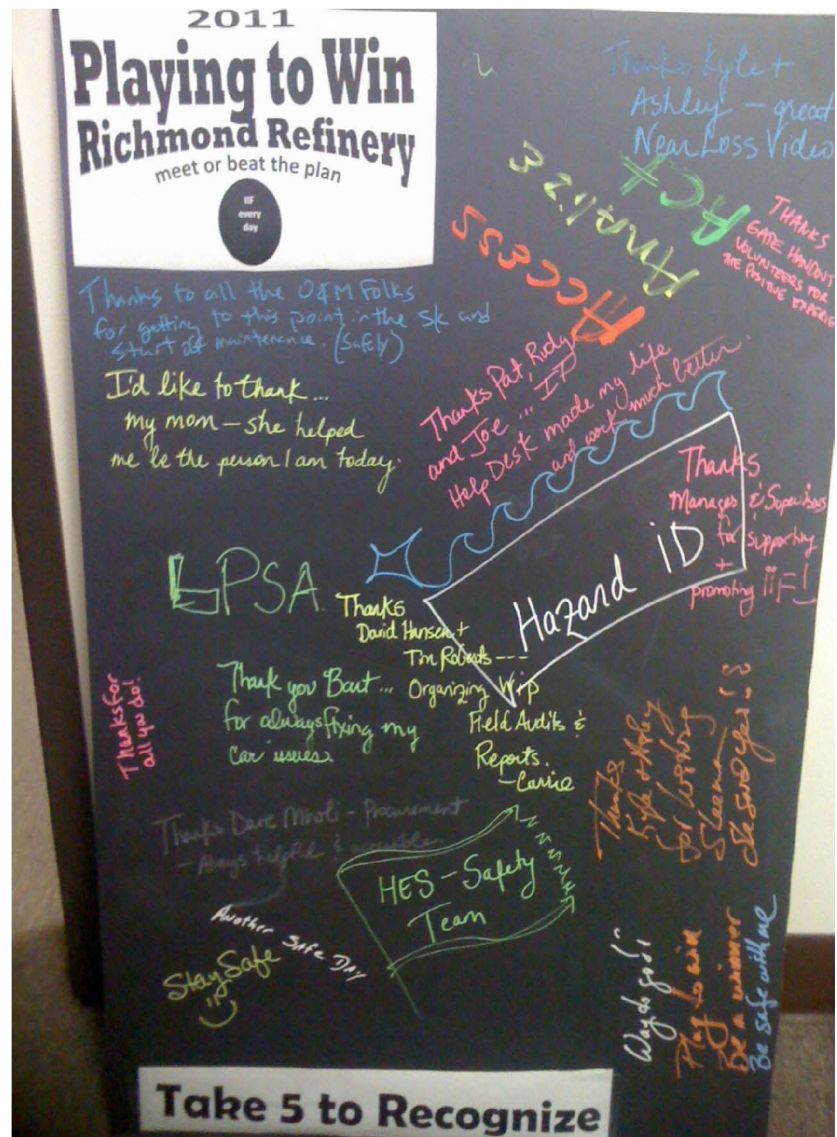 2011
Playing to Win
Richmond Refinery
meet or beat the plan
IIF
every
day
Thanks Kyle +
Ashley - great
Near Loss Video
ACT
Analize
Access
THANKS
GATE HANDOUT
VOLUNTEERS FOR
THE POSITIVE EXPERIE
Thanks to all the O&M Folks
for getting to this point in the s/d and
start of maintenance. (Safely)
I'd like to thank...
my mom - she helped
me be the person I am today.
Thanks Pat, Rudy
and Joe ... IT
Help Desk made my life
and work much better.
Thanks
Manages & Supervisors
for supporting
+
promoting iiF!
Hazard iD
LPSA
Thanks
David Hansen +
Tim Roberts ---
Organizing
Field Audits &
Reports.
-Carrie
Thank you Bart...
for always fixing my
car issues.
Thanks for
all you do!
Thanks Dave - Procurement
- Always helpful &
HES - Safety
Team
Another Safe Day
Stay Safe
Thanks
Kyle + Ashley
for
Way to go!
Play to win
Be a winner
Be safe with me
Take 5 to Recognize